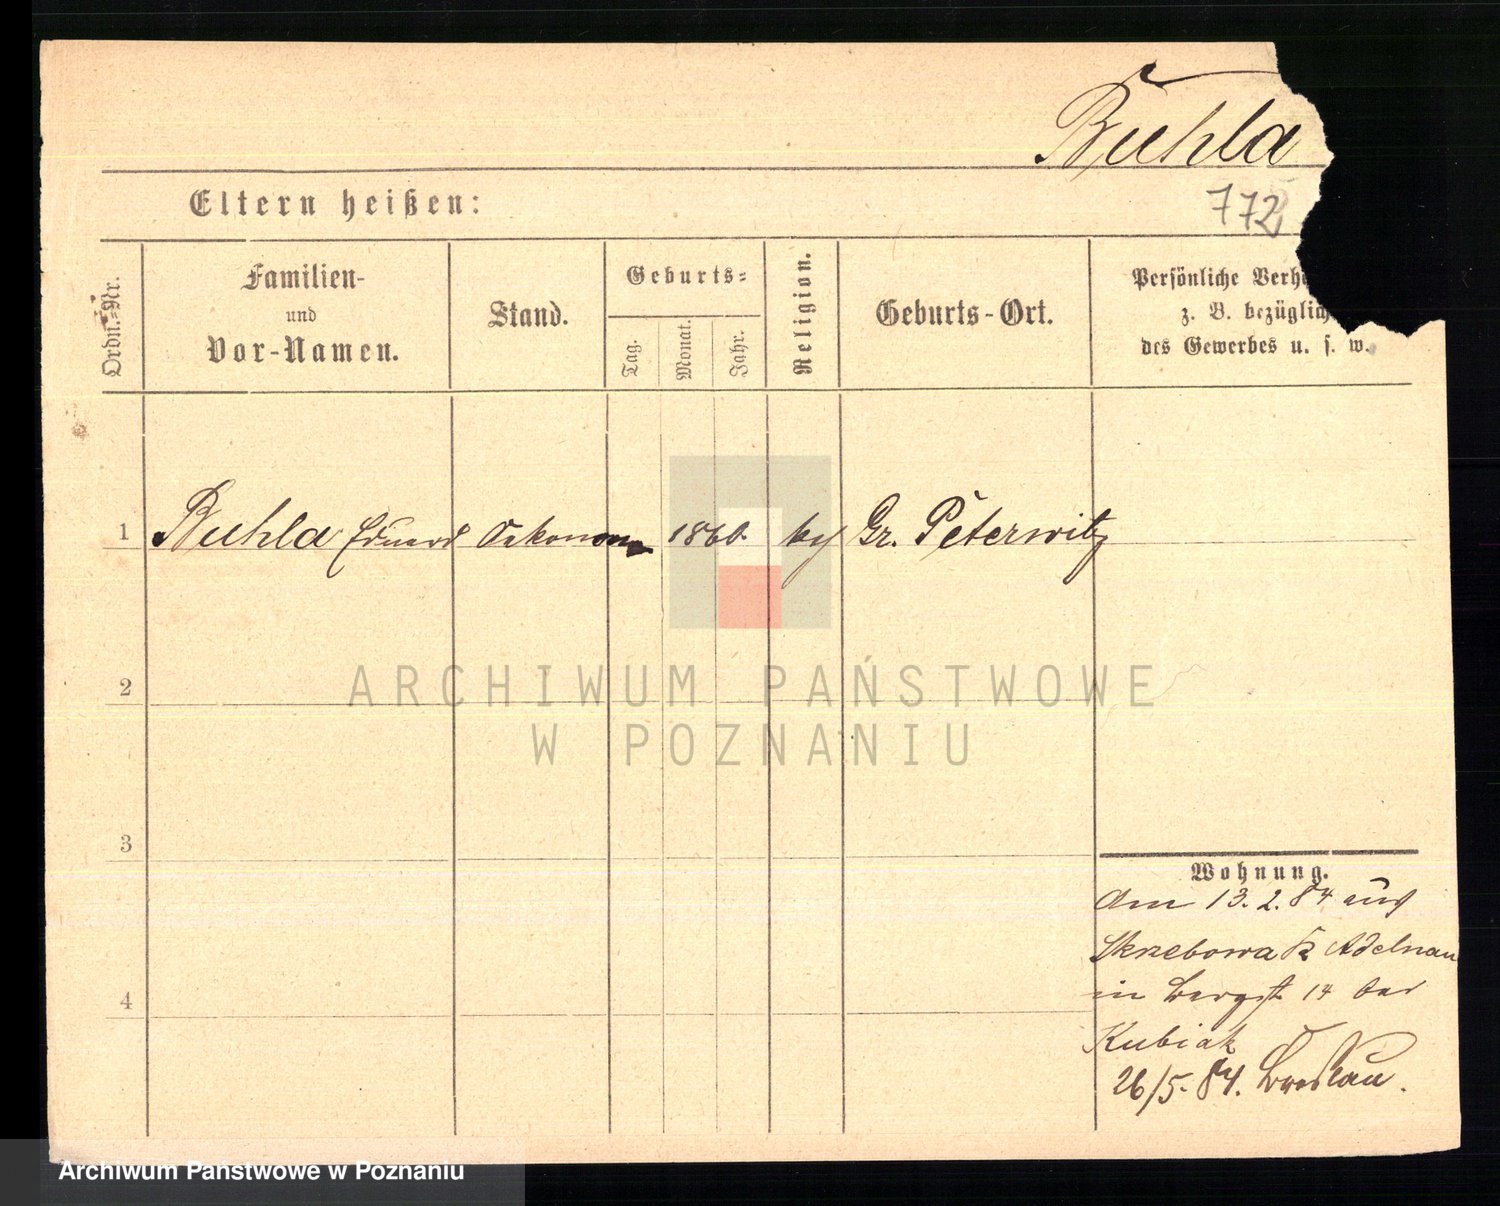 Buhla
772
Eltern heißen:
Ordn.-Nr.
Familien-
und
Vor-Namen.
Stand.
Geburts-
Tag.
Monat.
Jahr.
Religion.
Geburts-Ort.
Persönliche Verh
z. B. bezüglich
des Gewerbes u. s. w.
1 Buhla Eduard Oekonom 1860. Gr. Peterwitz
2
3
4
Wohnung.
Am 13.2.84 aus
Skrzebowa K Adelnau
in Bergst 14 bei
Kubiak
26/5.84. Breslau.
ARCHIWUM PAŃSTWOWE
W POZNANIU
Archiwum Państwowe w Poznaniu